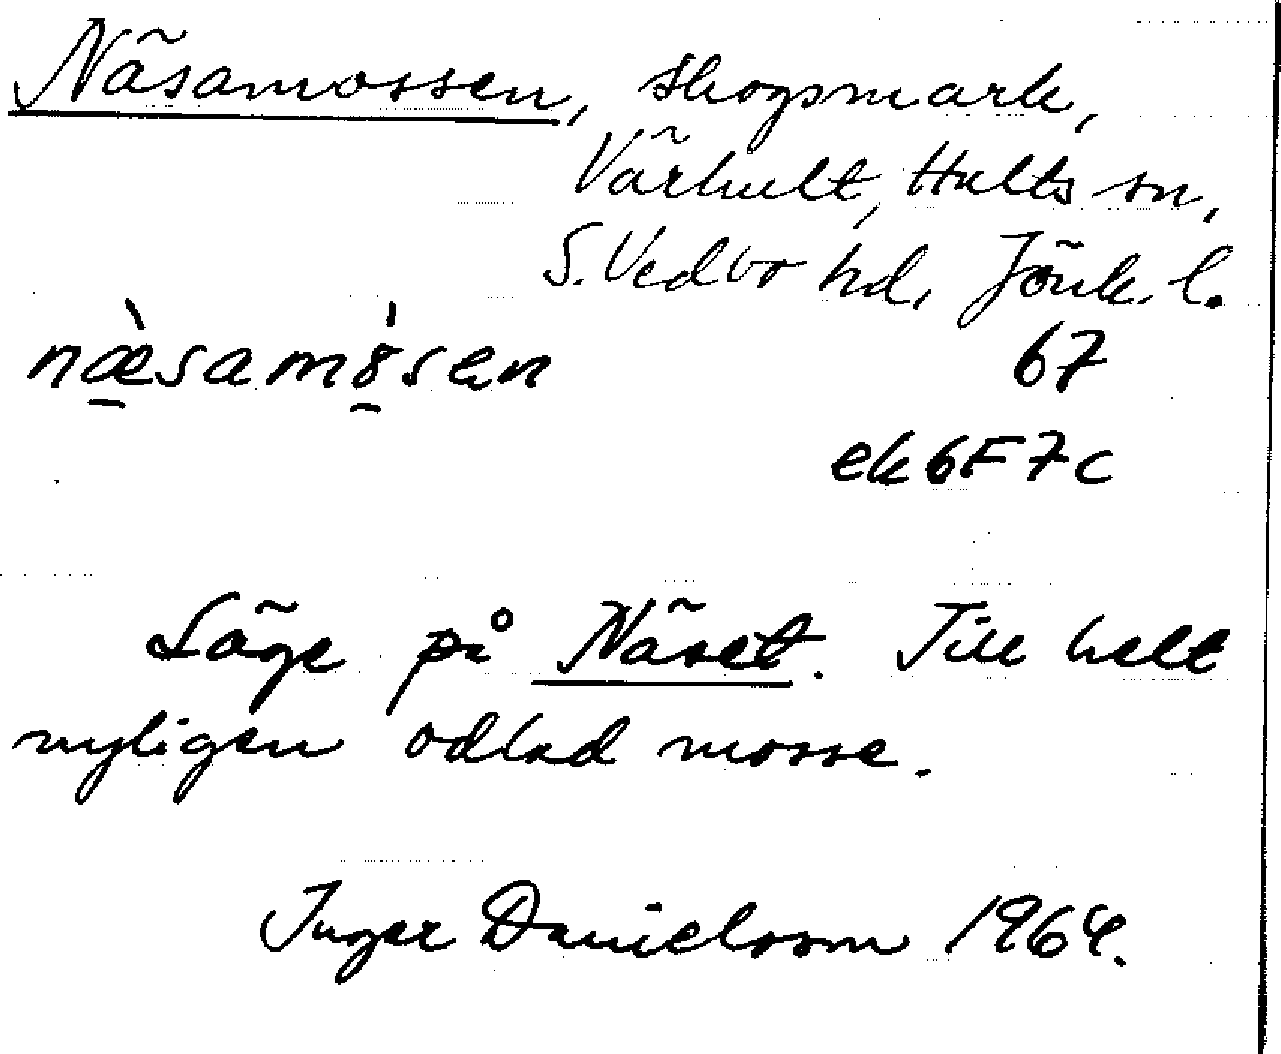 Näsamossen, skogsmark,
Värhult, Hults sn,
S. Vedbo hd, Jönk. l.
næ̲̀samȣ̲́sen 67
ek 6F7c
Läge på Näset. Till helt
nyligen odlad mosse.
Inger Danielsson 1964.